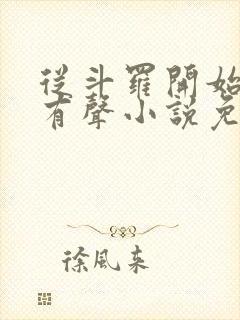 從斗羅開始
有聲小說免
徐風來